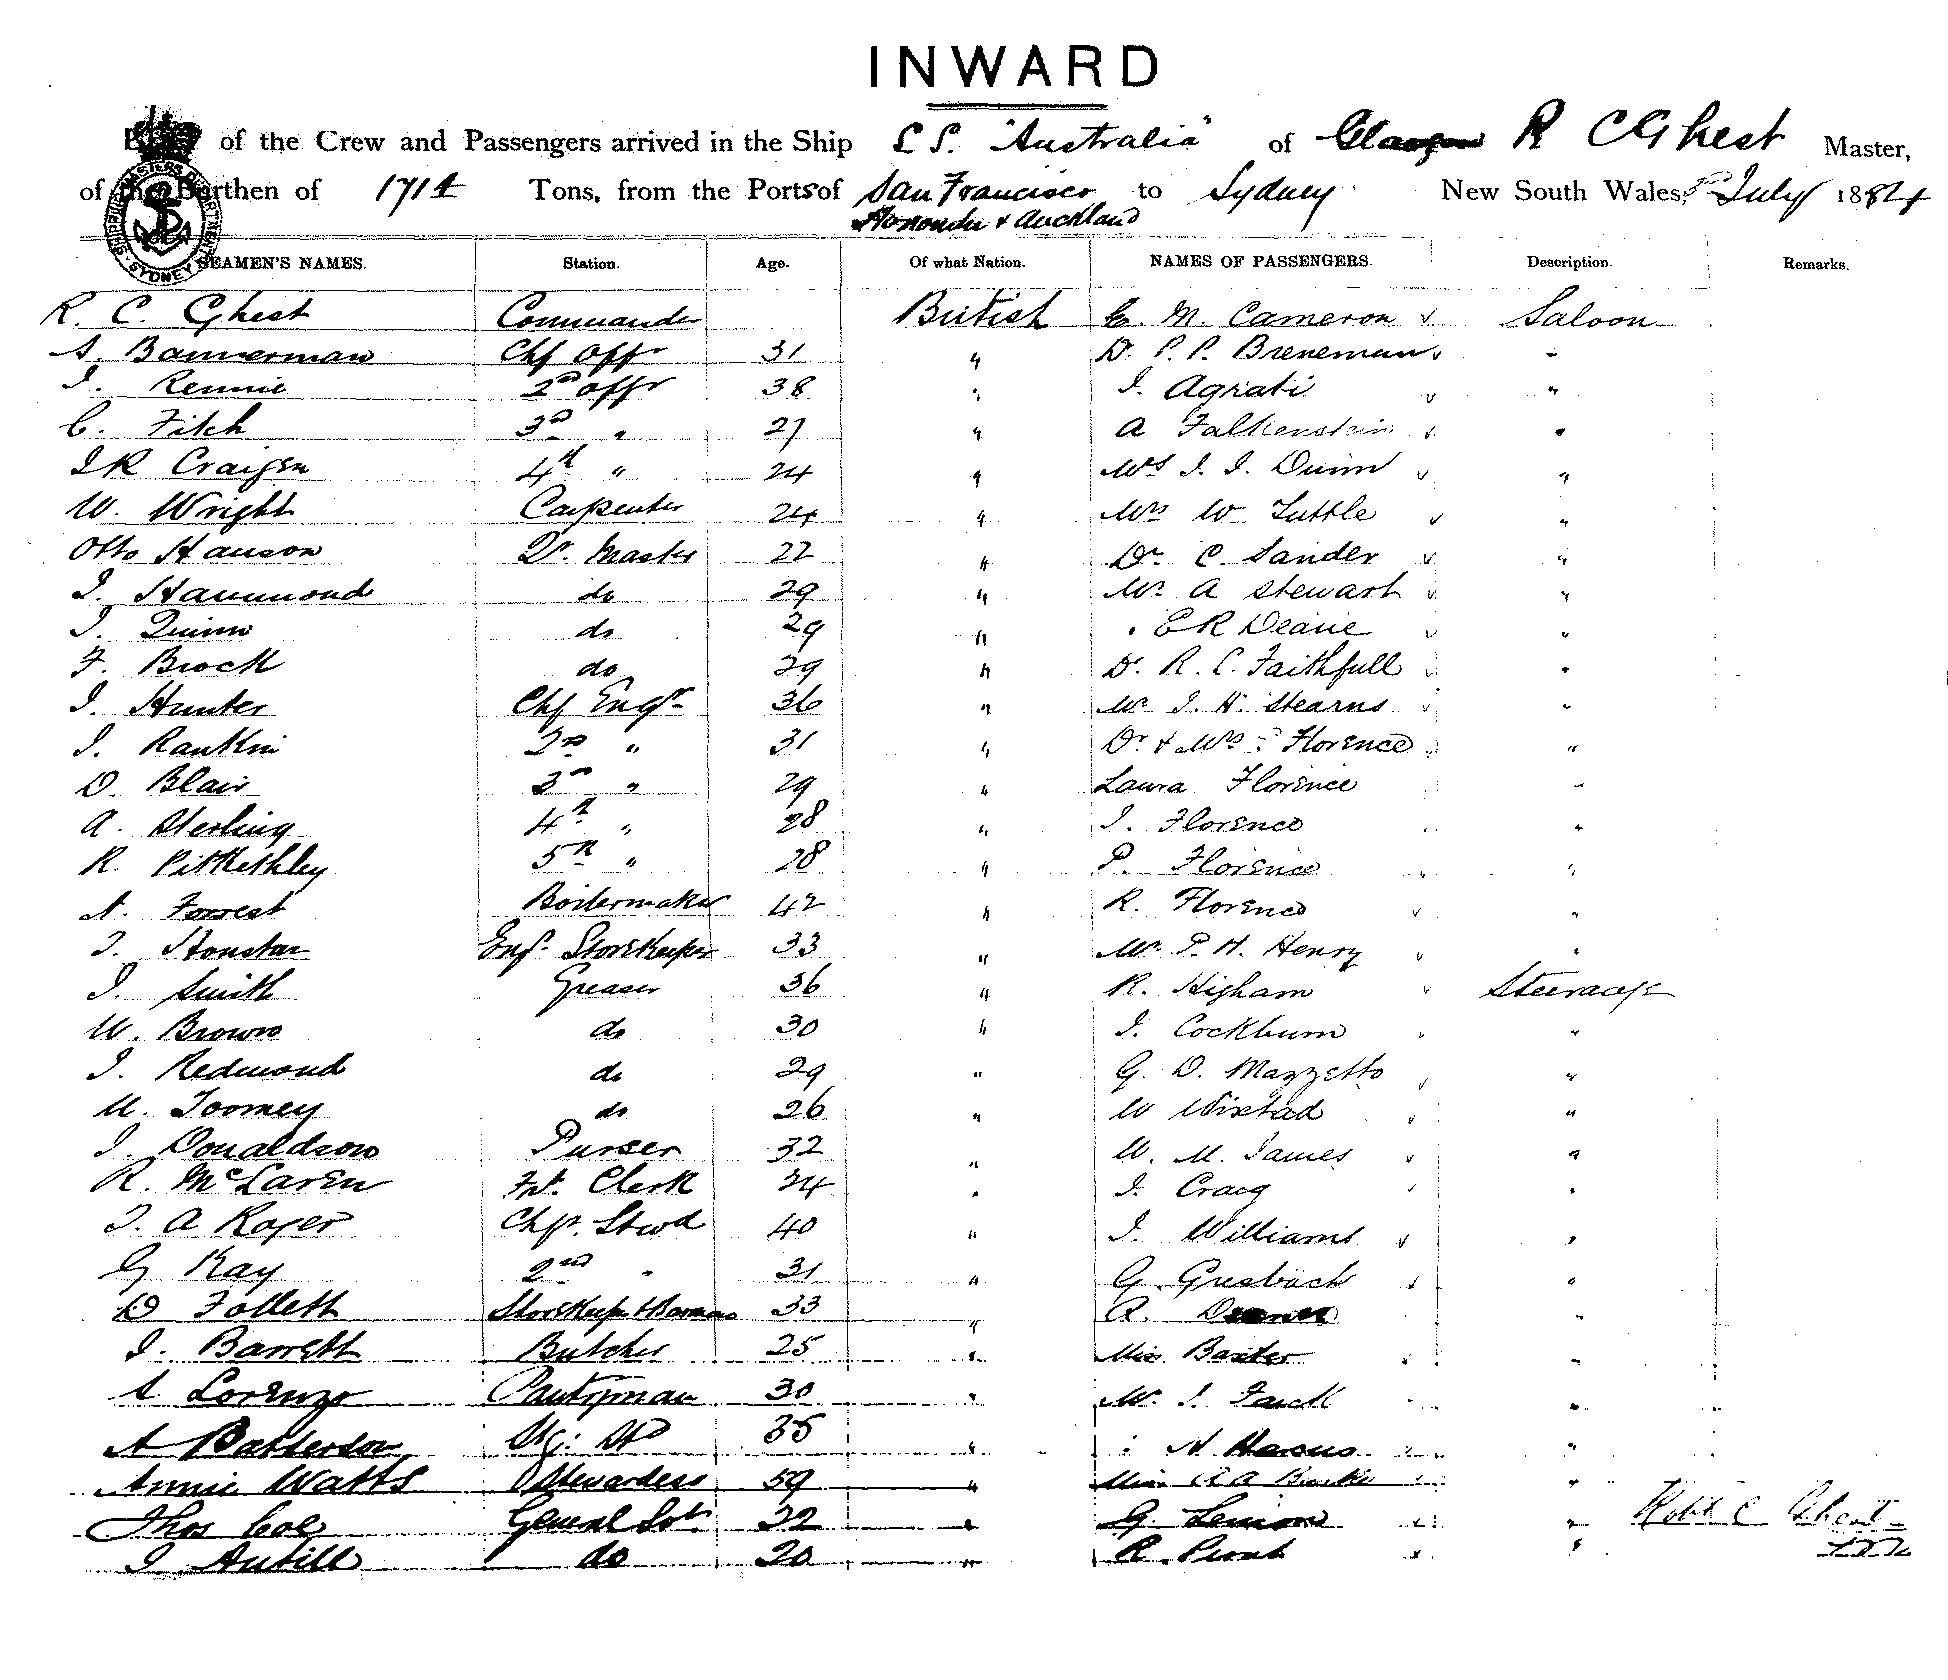 INWARD
of the Crew and Passengers arrived in the Ship S.S. "Australia" of Glasgow R C Ghest Master,
of the Burthen of 1714 Tons, from the Ports of San Francisco to Sydney New South Wales, July 1884
& Auckland
SEAMEN'S NAMES. Station. Age. Of what Nation. NAMES OF PASSENGERS. Description. Remarks.
R. C. Ghest Commander British C. M. Cameron Saloon
S. Bannerman Chf Offr 31 " D. P. P. Breneman "
J. Rennie 2nd offr 38 " J. Agrati "
C. Fitch 3rd " 27 " A Falkenstein "
J R Craigen 4th " 24 " Mrs J. J. Dunn "
W. Wright Carpenter 24 " Mrs W Tuttle "
Otto Hanson Qr. Master 22 " Dr C. Sander "
J. Hammond do 29 " Mr A Stewart "
J. Quinn do 29 " " E R Deane "
F. Brock do 29 " Dr. R. C. Faithfull "
J. Hunter Chf Engr 36 " Mr J. H. Stearns "
J. Rankin 2nd " 31 " Dr & Mrs Florence "
D. Blair 3rd " 29 " Laura Florence "
A. Sterling 4th " 28 " J. Florence "
R. Pitkethley 5th " 28 " P. Florence "
A. Forrest Boilermaker 42 " R. Florence "
J. Houstan Engr Storekeeper 33 " Mr P. H. Henry "
J. Smith Greaser 36 " R. Higham Steerage
W. Brown do 30 " J. Cockburn "
J. Redmond do 29 " G. D. Mazzetto "
M. Toomey do 26 " W Wixtad "
J. Donaldson Purser 32 " W. M. James "
R. McLaren Frt. Clerk 24 " J. Craig "
J. A Roger Chf. Stwd 40 " J. Williams "
G Kay 2nd " 31 " G. Griesbach "
D Follett Storekeeper & Barman 33 " R. "
J. Barrett Butcher 25 " Miss Baxter "
A Lorenzo Pantryman 30 " Mr. J. Farck "
A Patterson 35 " " "
Annie Watts Stewardess 59 " Miss "
Thos Coe General Svt 22 " G. " Robt C Ghest
J Antill do 20 " R. "